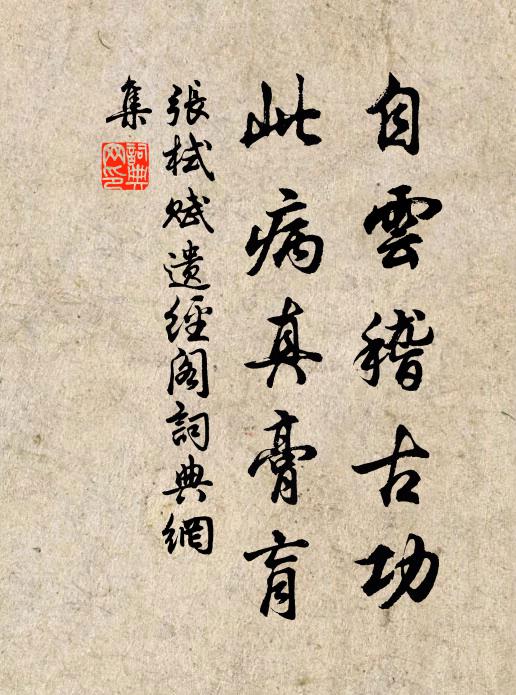 自雲稽古功
此病真膏肓
張栻賦遺經閣詞典網
集
詞典網印